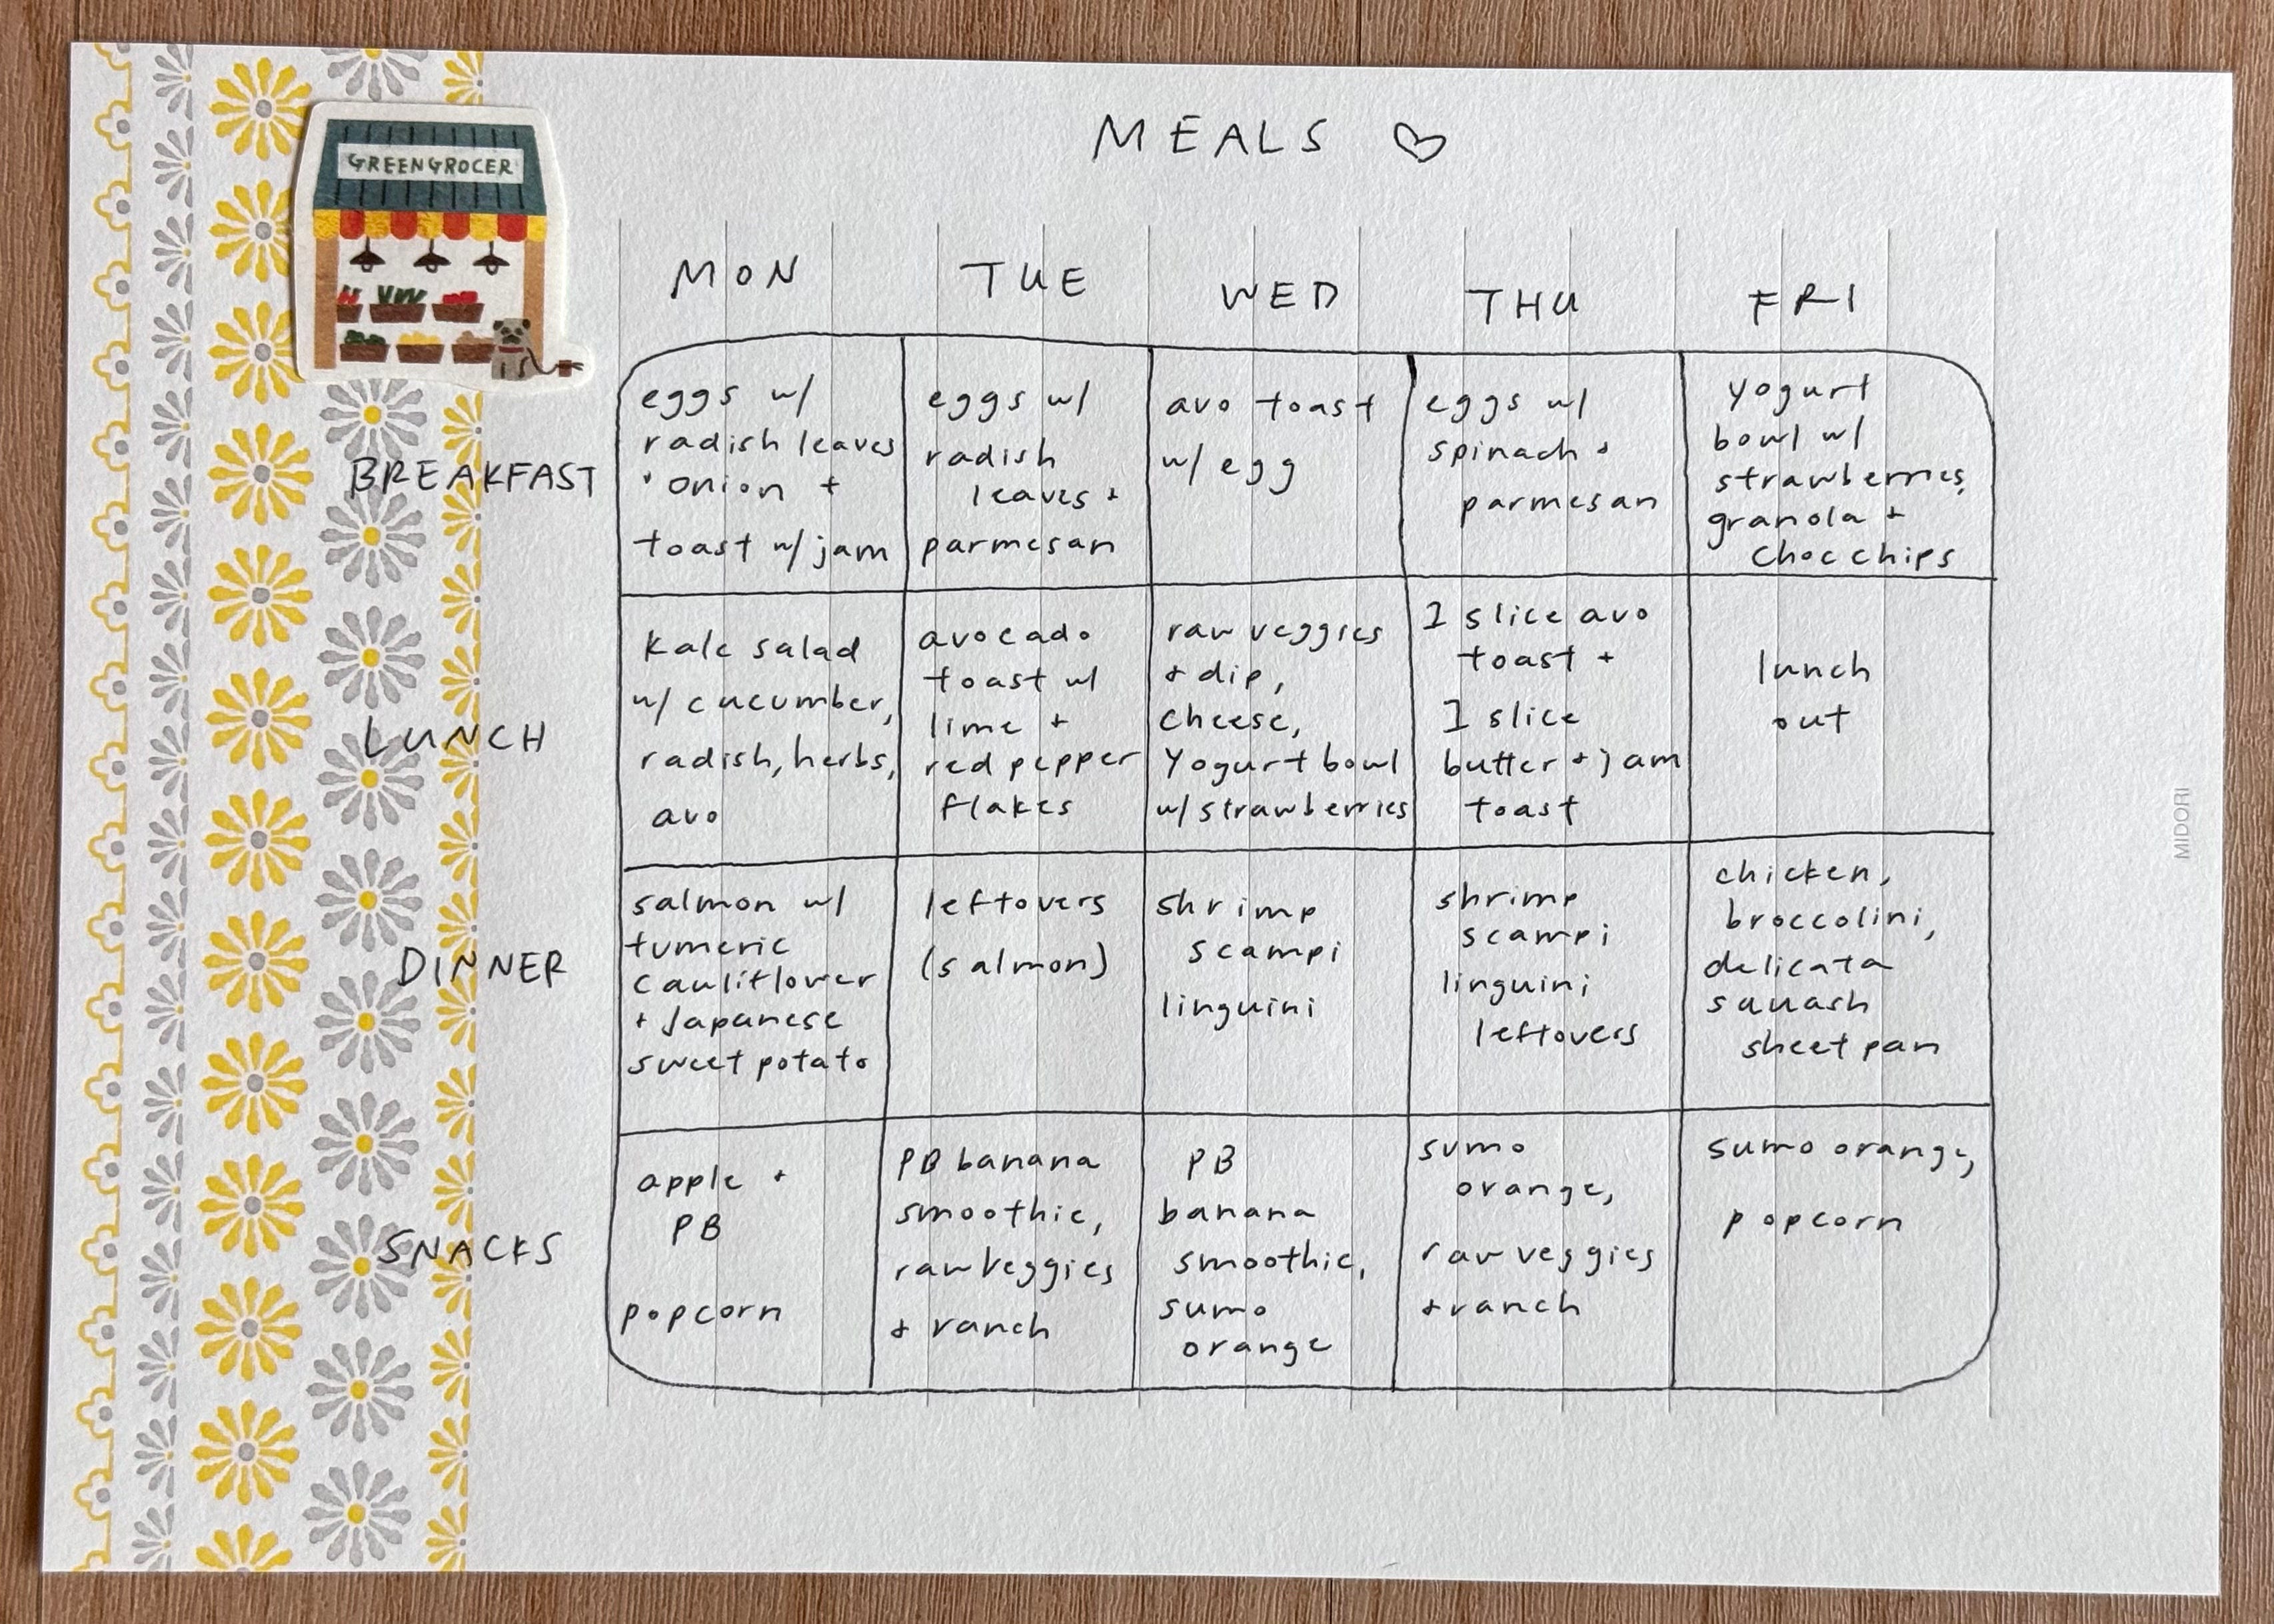 GREENGROCER
MEALS ♡
MON
TUE
WED
THU
FRI
BREAKFAST
eggs w/
radish leaves
+ onion +
toast w/ jam
eggs w/
radish
leaves +
parmesan
avo toast
w/ egg
eggs w/
spinach +
parmesan
yogurt
bowl w/
strawberries,
granola +
choc chips
LUNCH
kale salad
w/ cucumber,
radish, herbs,
avo
avocado
toast w/
lime +
red pepper
flakes
raw veggies
+ dip,
cheese,
yogurt bowl
w/ strawberries
1 slice avo
toast +
1 slice
butter + jam
toast
lunch
out
DINNER
salmon w/
tumeric
cauliflower
+ Japanese
sweet potato
leftovers
(salmon)
shrimp
scampi
linguini
shrimp
scampi
linguini
leftovers
chicken,
broccolini,
delicata
squash
sheet pan
SNACKS
apple +
PB
popcorn
PB banana
smoothie,
raw veggies
+ ranch
PB
banana
smoothie,
sumo
orange
sumo
orange,
raw veggies
+ ranch
sumo orange,
popcorn
MIDORI